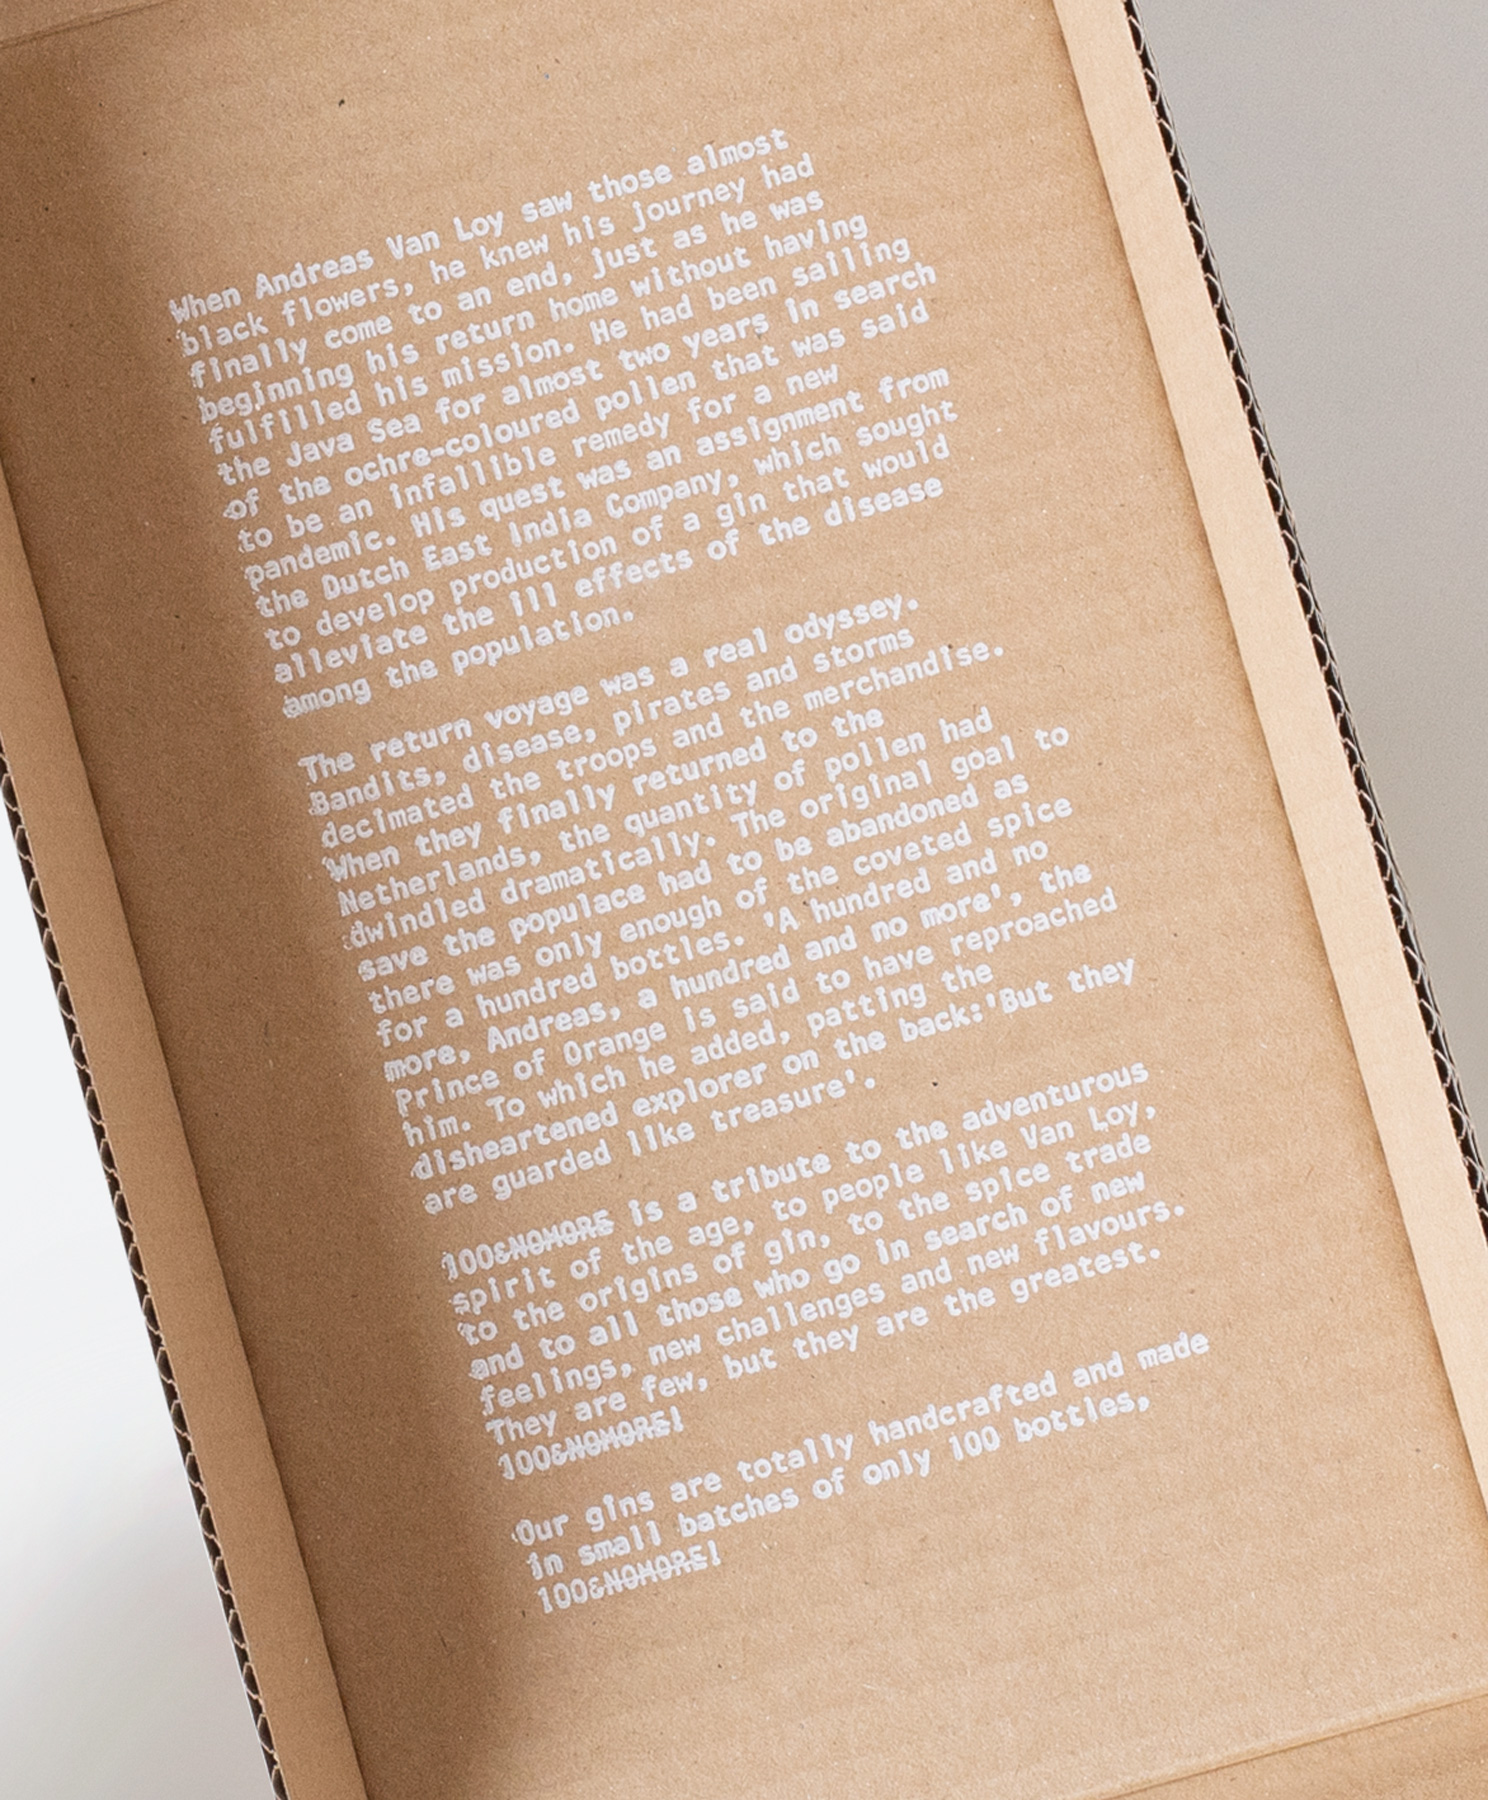 When Andreas Van Loy saw those almost
black flowers, he knew his journey had
finally come to an end, just as he was
beginning his return home without having
fulfilled his mission. He had been sailing
the Java Sea for almost two years in search
of the ochre-coloured pollen that was said
to be an infallible remedy for a new
pandemic. His quest was an assignment from
the Dutch East India Company, which sought
to develop production of a gin that would
alleviate the ill effects of the disease
among the population.
The return voyage was a real odyssey.
Bandits, disease, pirates and storms
decimated the troops and the merchandise.
When they finally returned to the
Netherlands, the quantity of pollen had
dwindled dramatically. The original goal to
save the populace had to be abandoned as
there was only enough of the coveted spice
for a hundred bottles. 'A hundred and no
more, Andreas, a hundred and no more', the
Prince of Orange is said to have reproached
him. To which he added, patting the
disheartened explorer on the back:'But they
are guarded like treasure'.
100&NOMORE is a tribute to the adventurous
spirit of the age, to people like Van Loy,
to the origins of gin, to the spice trade
and to all those who go in search of new
feelings, new challenges and new flavours.
They are few, but they are the greatest.
100&NOMORE!
Our gins are totally handcrafted and made
in small batches of only 100 bottles,
100&NOMORE!